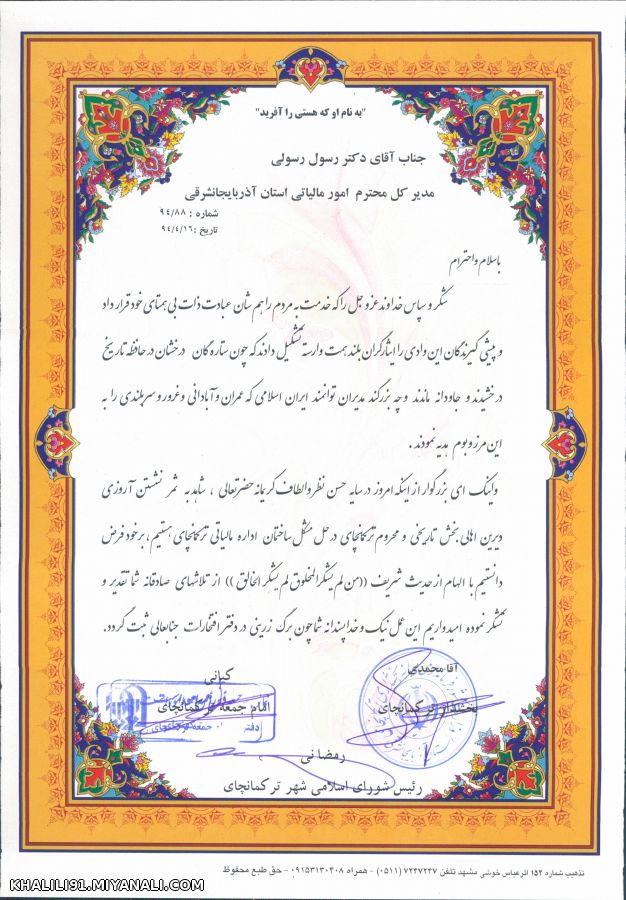 "به نام او که هستی را آفرید"
جناب آقای دکتر رسول رسولی
مدیر کل محترم امور مالیاتی استان آذربایجانشرقی
شماره : ۹٤/۸۸
تاریخ : ۹٤/٤/۱٦
باسلام واحترام
شکر و سپاس خداوند عزو جل را که خدمت به مردم را هم شان عبادت ذات بی همتای خود قرار داد
و پیشی گیرندگان این وادی را ایثارگران بلند همت وارسته تشکیل دادند که چون ستاره گان درخشان در حافظه تاریخ
درخشیدند و جاودانه ماندند و چه بزرگند مدیران توانمند ایران اسلامی که عمران و آبادانی و غرور و سربلندی را به
این مرز و بوم هدیه نمودند .
واینک ای بزرگوار از اینکه امروز در سایه حسن نظر والطاف کریمانه حضرتعالی ، شاهد به ثمر نشستن آروزی
دیرین اهالی بخش تاریخی و محروم ترکمانچای در حل مشکل ساختمان اداره مالیاتی ترکمانچای هستیم ، بر خود فرض
دانستیم با الهام از حدیث شریف ((من لم یشکر المخلوق لم یشکر الخالق )) از تلاشهای صادقانه شما تقدیر و
تشکر نموده امیدواریم این عمل نیک و خداپسندانه شما چون برگ زرینی در دفتر افتخارات جنابعالی ثبت گردد.
آقا محمدی
کیانی
بخشدار ترکمانچای
امام جمعه ترکمانچای
رمضانی
رئیس شورای اسلامی شهر ترکمانچای
تذهیب شماره ۱۵۲ اثرعباس خوشی مشهد تلفن ۷۲۴۷۲۴۷ (۰۵۱۱) - همراه ۰۹۱۵۳۱۳۰۴۰۸ - حق طبع محفوظ
KHALILI91.MIYANALI.COM